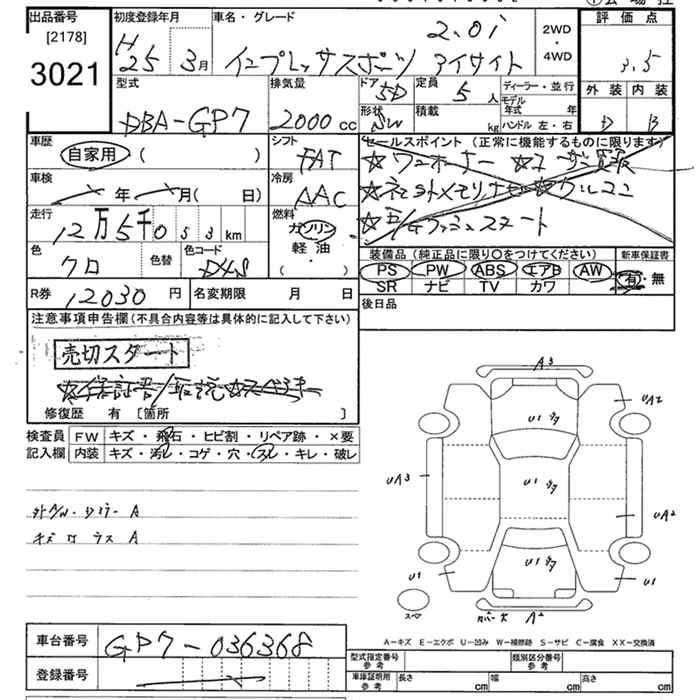 出品番号 [2178] 3021
初度登録年月 H25 3月
車名・グレード 2.0i
インプレッサスポーツ アイサイト
2WD・4WD
評価点 3.5
外装 D 内装 B
型式 DBA-GP7
排気量 2000cc
ドア 5D
形状 SW
定員 5人
積載 kg
ディーラー・並行
モデル年式 年
ハンドル 左・右
車歴 自家用 ( )
シフト FAT
セールスポイント (正常に機能するものに限ります)
☆ワンオーナー ☆ユーザー買取
☆ / ☆
☆ /Gプッシュスタート
車検 年 月( 日)
冷房 AAC
走行 12万5千053km
燃料 ガソリン 軽油 ( ・ )
色 クロ 色替 色コード D4S
装備品 (純正品に限り○をつけてください) 新車保証書
PS PW ABS エアB AW 有・無
SR ナビ TV カワ
R券 12030円 名変期限 月 日
後日品
注意事項申告欄 (不具合内容等は具体的に記入して下さい)
売切スタート
☆保証書/取説☆スペアキー
修復歴 有 [箇所 ]
検査員 FW キズ・飛石・ヒビ割・リペア跡・×要
記入欄 内装 キズ・汚レ・コゲ・穴・スレ・キレ・破レ
A
キズ A
A3
UA2
U1
UA3
U1
UA2
U1
U1
U1
スペア
A2
A-キズ E-エクボ U-凹み W-補修跡 S-サビ C-腐食 XX-交換済
車台番号 GP7-036368
登録番号
型式指定番号 参考 類別区分番号 参考
車庫証明用 参考 長さ cm 幅 cm 高さ cm